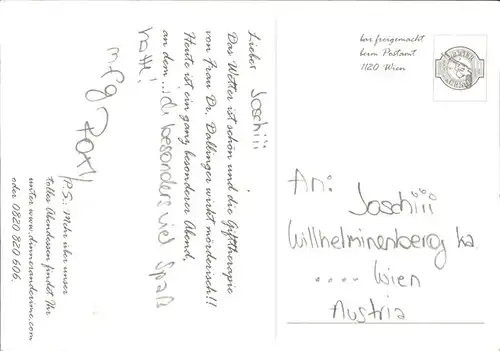 Lieber Joschiii
Das Wetter ist schön und die Gifttherapie
von Frau Dr. Dallinger wirkt mörderisch!!
Heute ist ein ganz besonderer Abend,
an dem ...ich besonders viel Spaß
hatte!
mfg
P.S.: Mehr über unser
tolles Abendessen findet Ihr
unter www.dinnerandcrime.com
oder 0820 820 606.
bar freigemacht
beim Postamt
1120 Wien
An:
Joschiii
Willhelminenberg ka
.... Wien
Austria